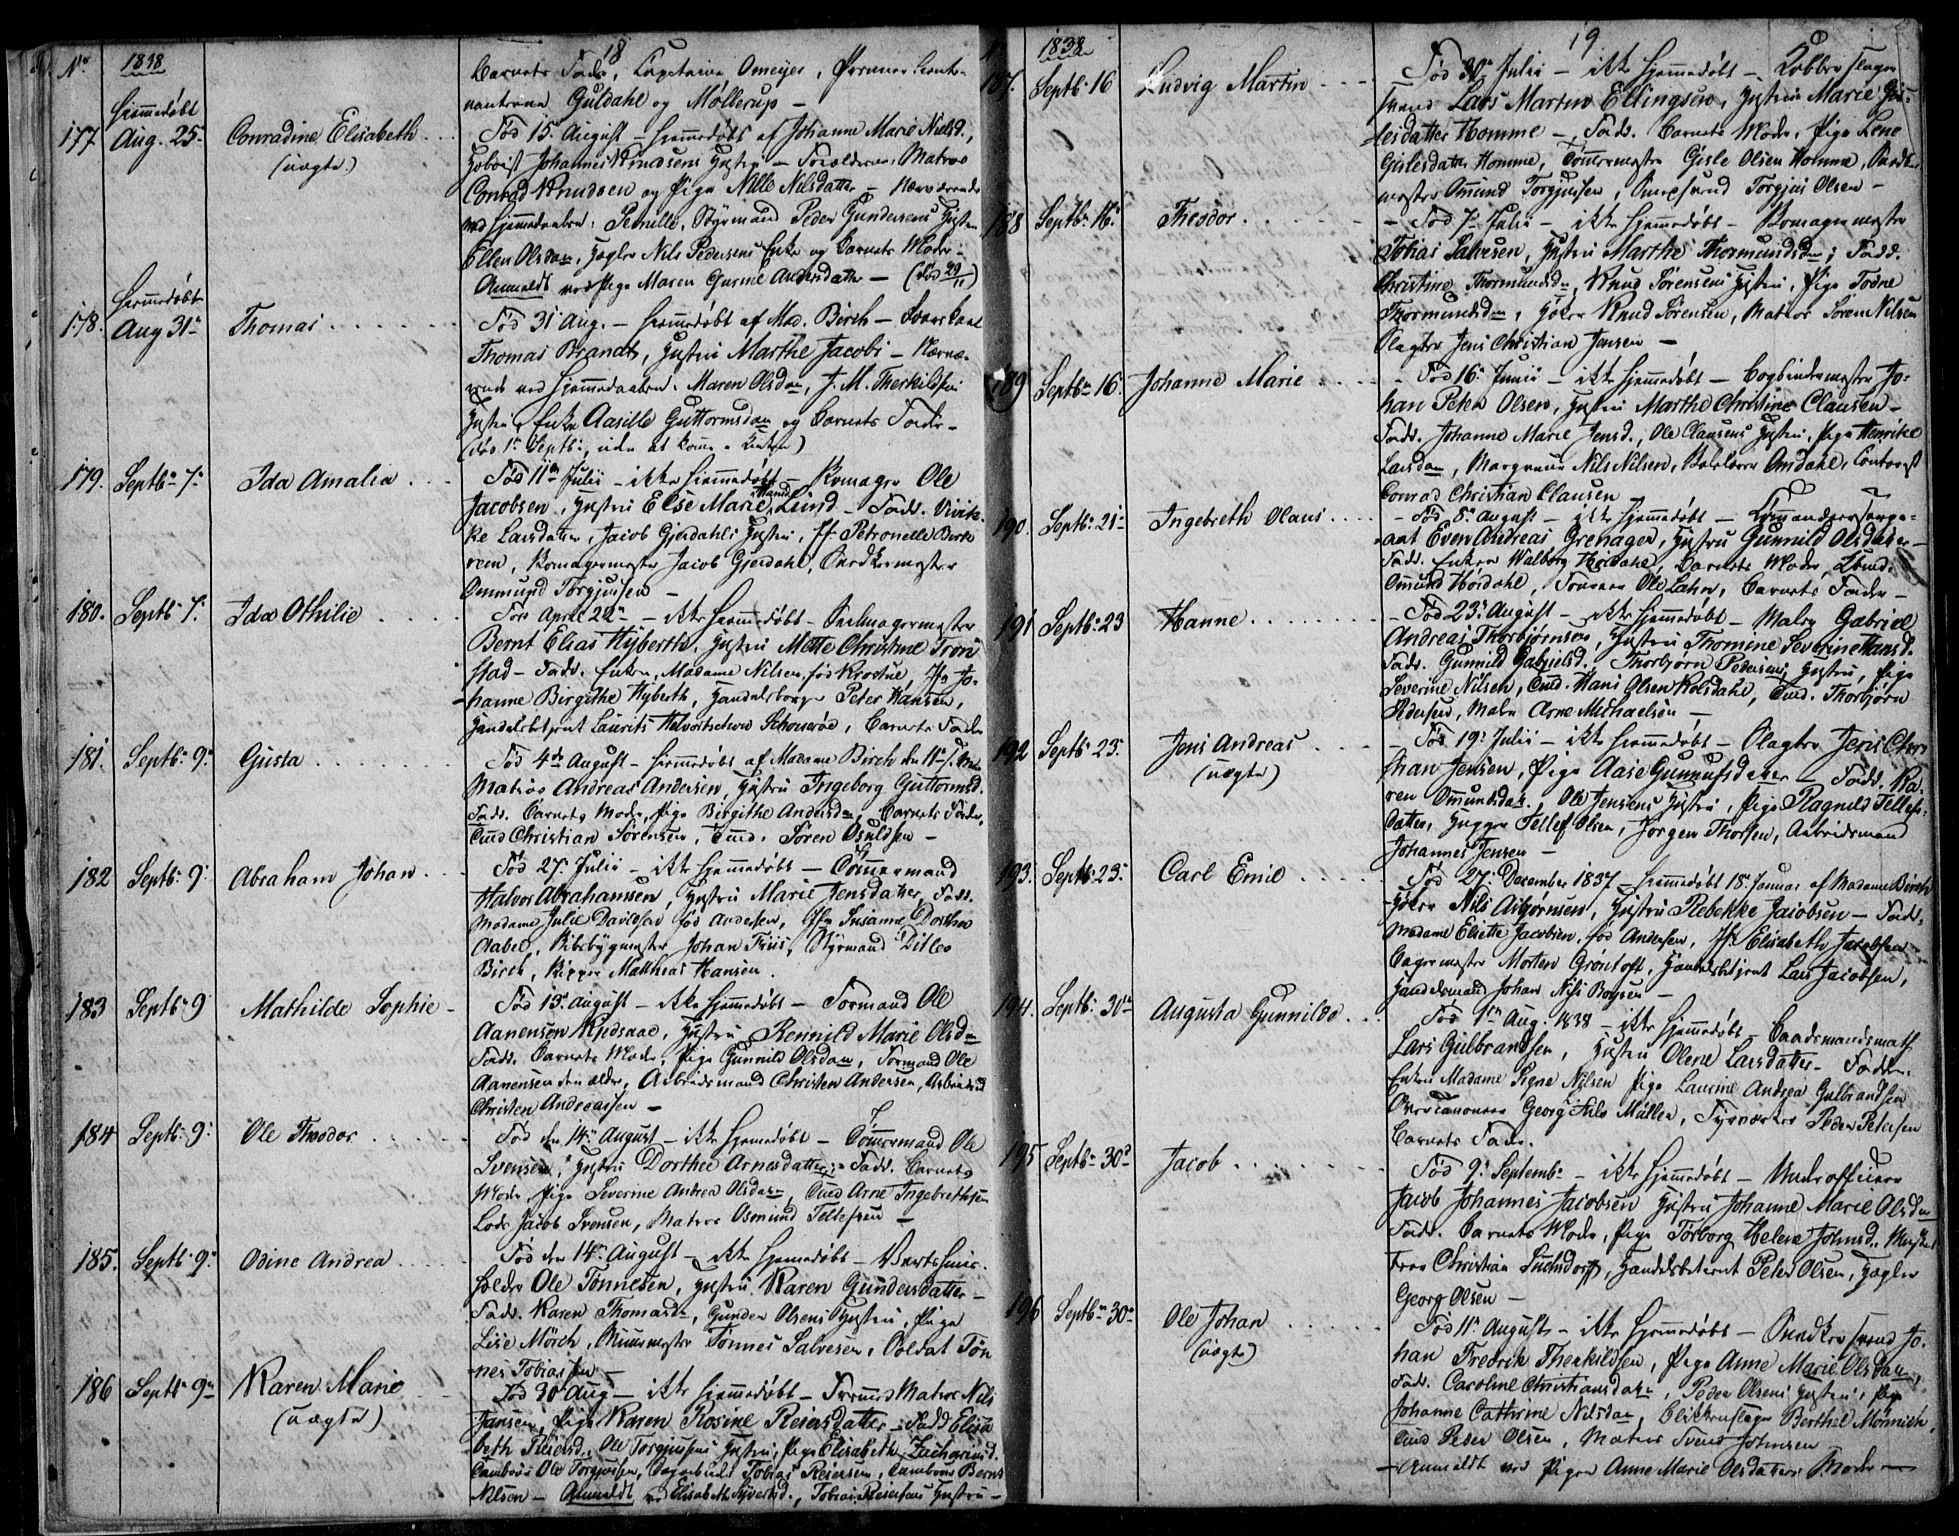 18
No 1838
Barnets Fader, Capitaine Omeyer, Premier Lieute-
nanterne Guldahl og Møllerup —
177 Hjemmedøbt Aug. 25 Conradine Elisabeth (uægte)
Fød 15 August — hjemmedøbt af Johanne Marie Nielsd.,
Johannes Knudsens Hustru — Forældrene: Matros
Conrad Knudsen og Pige Nille Nilsdatter — Nærværende
ved Hjemmedaaben: Pernille, Styrmand Peder Gundersens Hustru
Ellen Olsdatter, Nils Pedersens Enke og Barnets Moder —
Anmeldt ved Pige Maren Gurine Andersdatter —
178. Hjemmedøbt Aug 31 Thomas
Fød 31 Aug. — hjemmedøbt af Mad. Birch —
Thomas Brandt, Hustru Marthe Jacobi — Nærvæ-
rende ved Hjemmedaaben: Maren Olsdn, J. M. Therkildsens
Hustru, Enke Aasille Guttormsdn og Barnets Fader —
(død 1 Septb:, uden at komme i Kirken)
179. Septbr 7 Ida Amalia
Fød 11 Julii — ikke hjemmedøbt — Ole
Jacobsen, Hustru Else Marie Lund — Fadd. Vivik-
ke Larsdatter, Jacob Gjerdahls Hustru, Jf. Petronelle Birke
rem, Jacob Gjerdahl, Snedkermester
Ommund Torgjusen —
180. Septb 7 Ida Othilie
Fød April 22 — ikke hjemmedøbt —
Bernt Elias Hyberth, Hustru Mette Christine Tron
stad — Fadd. Enken, Madame Nilsen, Jfr Jo-
hanne Birgithe Hyberth, Handelsborger Peter Hansen,
Handelsbetjent Laurits Schouerøe, Barnets Fader
181. Septb 9 Gusta
Fød 4de August — hjemmedøbt af Madame Birch den 11
Matros Andreas Andersen, Hustru Ingeborg Guttormsd.
Fadd. Barnets Moder, Pige Birgithe Andersdn, Barnets Fader,
Christian Sørensen, Søren Osuldsen —
182 Septb 9 Abraham Johan
Fød 27 Julii — ikke hjemmedøbt — Tømmermand
Halvor Abrahamsen, Hustru Marie Jensdatter, Fadd.
Madame Julie Davidsen fød Andersen, Jfr Susanne Dorthea
Aabel, Skibsbygmester Johan Friis, Styrmand Ditlev
Birch, Skipper Matthias Hansen.
183 Septb 9 Mathilde Sophie
Fød 13 August — ikke hjemmedøbt — Formand Ole
Aanensen, Hustru Rennild Marie Olsdn
Fadd. Barnets Moder, Pige Gunnild Olsdn, Formand Ole
Aanensen den ældre, Arbeidsmand Christen Andersen, Arbeidsmd
Christen Andreassen —
184 Septb 9 Ole Theodor
Fød den 14 August — ikke hjemmedøbt — Tømmermand Ole
Svensen, Hustru Dorthee Arnesdatter — Fadd. Barnets
Moder, Pige Severine Andrea Olsdn, Arne Ingebrethsen
Lods Jacob Svensen, Matros Osmund Tellefsen —
185. Septb 9 Odine Andrea
Fød den 14 August — ikke hjemmedøbt — Vertshuus-
holder Ole Tønnesen, Hustru Karen Gundersdatter —
Fadd. Karen Thomasdn, Gunder Olsens Hustru, Pige
Lise Mörch, Tønnes Salvesen, Soldat Tøn
nes Tobiassen —
186 Septb 9 Karen Marie (uægte)
Fød 30 Aug — ikke hjemmedøbt — Matros Nils
Jansen, Pige Karen Rosine Reiersdatter — Fadd Elisa
beth Reiersd., Ole Torgjusens Hustru, Pige Elisabeth Zachariasd.
Ole Torgjusen, Tobias Reiersen, Bernt
Nilsen — Anmeldt ved Elisabeth Syvertsd., Tobias Reiersens Hustru —
19
1838
187. Septb 16 Ludvig Martin
Fød 30 Julii — ikke hjemmedøbt — Kobberslager
svend Lars Martin Ellingsen, Hustru Marie Gis-
lesdatter Homme — Fadd. Barnets Moder, Pige Lene
Gislesdatter Homme, Tømmermester Gisle Olsen Homme, Snedker
mester Omund Torgjusen, Torgjus Olsen —
188 Septbr 16 Theodor
Fød 7 Julii — ikke hjemmedøbt —
Tobias Salvesen, Hustru Marthe Thormundsdn; Fadd.
Christine Thormundsdn, Knud Sørensens Hustru, Pige Todne
Thormundsdn, Høker Knud Sørensen, Matros Søren Nilsen
Slagter Jens Christian Jensen —
189 Septbr 16 Johanne Marie
Fød 16 Junii — ikke hjemmedøbt — Bogbindermester Jo-
han Peter Olsen, Hustru Marthe Christine Clausen —
Fadd. Johanne Marie Jensd., Ole Clausens Hustru, Pige Henrike
Larsdn, Nils Nilsen, Omdahl, Contorist
Conrad Christian Clausen
190. Septb 21 Ingebreth Olaus
Fød 8 August — ikke hjemmedøbt — Commandeersergi-
ant Even Andreas Grenager, Hustru Gunnild Olsdatter —
Fadd. Enken Walborg Hördahl, Barnets Moder,
Omund Hördahl, Ole Lahn, Barnets Fader —
191 Septb 23 Hanne
Fød 23 August — ikke hjemmedøbt — Maler Gabriel
Andreas Thorbjørnsen, Hustru Thomine Severine Hansd.
Fadd. Gunnild Gabrielsd., Thorbjørn Pedersens Hustru, Pige
Severine Nilsen, Hans Olsen Kolsdahl, Thorbjørn
Pedersen, Maler Arne Michaelsen —
192 Septb 23 Jens Andreas (uægte)
Fød 19 Julii — ikke hjemmedøbt — Slagter Jens Chri
stian Jensen, Pige Aase Gunnufsdatter — Fadd. Ka-
ren Omundsdn, Ole Jensens Hustru, Pige Ragnild Tellefs-
datter, Tellef Olsen, Jørgen Thorsen, Arbeidsmand
Johannes Jensen —
193. Septb 23 Carl Emil
Fød 27 December 1837 — hjemmedøbt 18 Januar af Madame Birch
Høker Nils Asbjørnsen, Hustru Rebekke Jacobsen — Fadd.
Madame Elisette Jacobsen, fød Andersen, Jfr Elisabeth Jacobsen
Bagermester Morten Grøntoft, Handelsbetjent Lars Jacobsen,
Handelsmand Johan Nils Boysen —
194. Septb 30 Augusta Gunnilde
Fød 1 Aug. 1838 — ikke hjemmedøbt — Baadsmandsmath
Lars Gulbrandsen, Hustru Olene Larsdatter — Faddere:
Enken Madame Signe Nilsen Pige Laurine Andrea Gulbrandsen
Overcanoneer Georg Müller, Fyrværker Peder Petersen
Barnets Fader.
195 Septb 30 Jacob
Fød 9 Septembr — ikke hjemmedøbt — Underofficeer
Jacob Johannes Jacobsen Hustru Johanne Marie Olsdn
Fadd. Barnets Moder, Pige Torborg Helene Johnsd.,
Christian Suhrdorff, Handelsbetjent Peter Olsen,
Georg Olsen —
196 Septbr 30 Ole Johan (uægte)
Fød 11 August — ikke hjemmedøbt — Snedkersvend Jo-
han Fredrik Therkildsen, Pige Anne Marie Olsdatter,
Fadd. Caroline Christiansdatr, Peder Olsens Hustru, Pige
Johanne Cathrine Nilsdn, Blikkenslager Berthel Mönnich
Peder Olsen, Matros Svend Johnsen
— Anmeldt ved Pigen Anne Marie Olsdatters Moder —